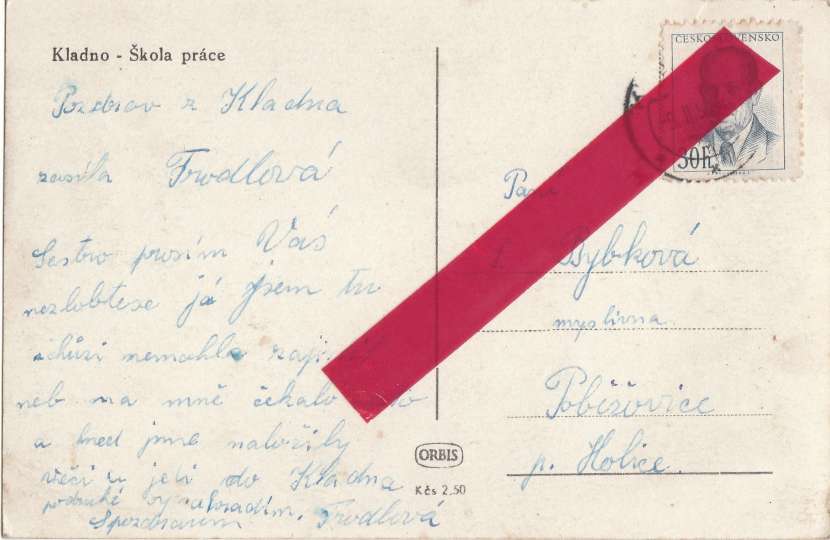 Kladno - Škola práce
Pozdrav z Kladna
zasílá Frodlová
Sestro prosím Vás
nezlobtese já jsem tu
schůzi nemohla
neb na mně čekalo
a hned jsme naložily
věci a jeli do Kladna
podruhé vynahradím.
Spozdravem Frodlová
ČESKOSLOVENSKO
30h
Paní
Rybková
myslivna
Poběžovice
p. Holice.
ORBIS
Kčs 2,50